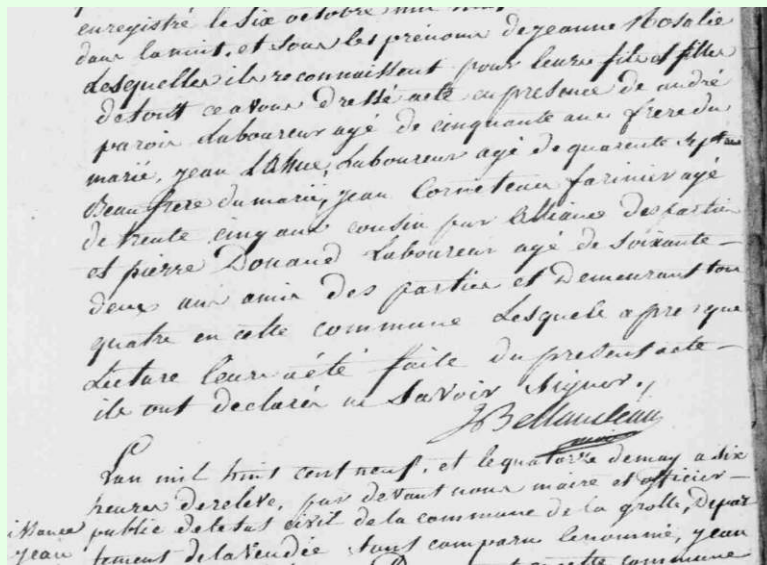 enregistré le six octobre mil huit
dans la nuit, et sous les prénoms de jeanne Rosalie
Lesquelles ils reconnaissent pour leurs fils et fille
de tout ce avons dressé acte en presence de andré
paroir Laboureur agé de cinquante ans frere du
marié, jean Laboureur agé de quarente sept ans
Beaufrere du marié, jean Corneteau farinier agé
de trente cinq ans cousin par alliance des parties
et pierre Douaud Laboureur agé de soixante-
deux ans amis des parties et Demeurant tous
quatre en cette commune Lesquels apres que
Lecture leurs a été faite du present acte-
ils ont declarés ne Savoir Signer,
Lan mil huit cent neuf, et le quatorze de may a six
heures de relevé, par devant nous maire et officier-
public de letat civil de la commune de la grolle, Depar
issance
tement de la Vendée, sont comparu le nommé, jean
jean
en cette commune